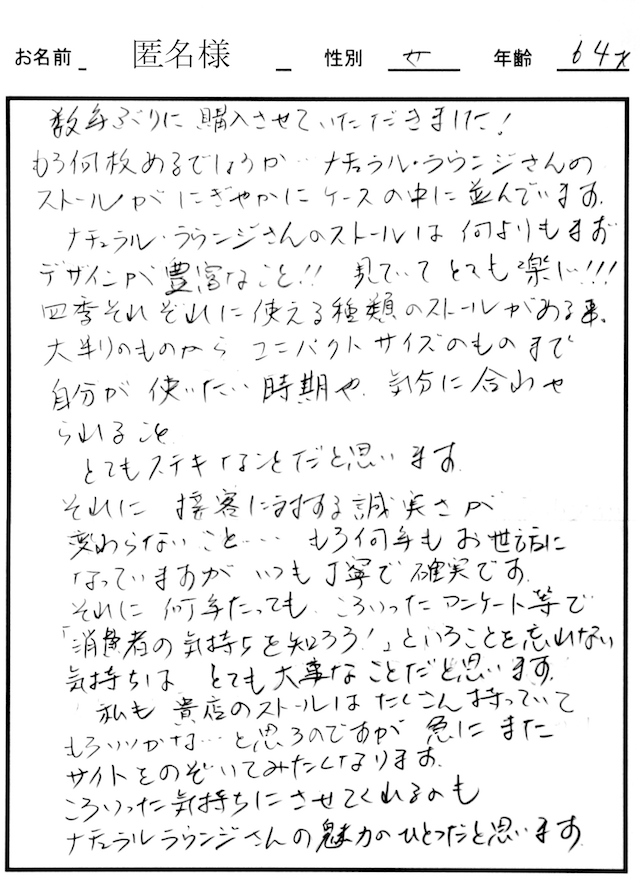 お名前 匿名様 性別 女 年齢 64才
数年ぶりに購入させていただきました!
もう何枚めるでしょうか… ナチュラル・ラウンジさんの
ストールがにぎやかにケースの中に並んでいます。
ナチュラル・ラウンジさんのストールは何よりもまず
デザインが豊富なこと!! 見ていてとても楽しい!!!
四季それぞれに使える種類のストールがある事。
大判のものからコンパクトサイズのものまで
自分が使いたい時期や、気分に合わせ
られること
とてもステキなことだと思います。
それに接客に対する誠実さが
変わらないこと… もう何年もお世話に
なっていますがいつも丁寧で確実です。
それに何年たっても、こういったアンケート等で
「消費者の気持ちを知ろう!」ということを忘れない
気持ちは とても大事なことだと思います。
私も貴店のストールはたくさん持っていて
もういいかな…と思うのですが 急にまた
サイトをのぞいてみたくなります。
こういった気持ちにさせてくれるのも
ナチュラルラウンジさんの魅力のひとつだと思います。